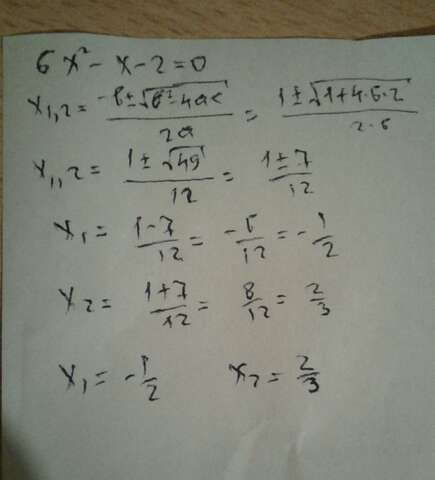 6x² - x - 2 = 0
x₁,₂ = (-b ± √(b² - 4ac)) / 2a = (1 ± √(1 + 4·6·2)) / 2·6
x₁,₂ = (1 ± √49) / 12 = (1 ± 7) / 12
x₁ = (1 - 7) / 12 = -6/12 = -1/2
x₂ = (1 + 7) / 12 = 8/12 = 2/3
x₁ = -1/2 x₂ = 2/3